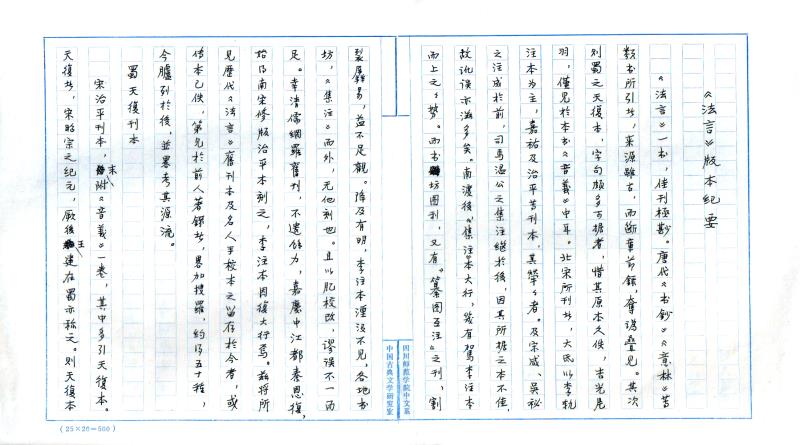 《法言》版本纪要
《法言》一书，佳刊极尠。唐代《书钞》《意林》等
类书所引者，来源虽古，而断章节录，夺讹叠见。其次
则蜀之天復本，字句颇多可据者，惜其原本久佚，吉光片
羽，僅見於本书《音義》中耳。北宋所刊者，大氐以李軌
注本为主，嘉祐及治平首刊本，其犖犖者。及宋咸、吴祕
之注成於前，司馬温公之集注继於後，因其所据之本不佳，
故讹误亦滋多矣。南渡後《集注》本大行，遂有駕李注本
而上之之势。而书坊图刊，又有《纂图互注》之刊，割
裂屡易，益不足观。降及有明，李注本湮没不見，各地书
坊，《集注》而外，无他刻也。且以肊校改，谬误不一而
足。幸清儒網羅舊刊，不遗餘力，嘉慶中江都秦恩復，
始得南宋修版治平本刻之，李注本因復大行焉。兹將所
見歷代《法言》舊刊本及名人手校本之留存於今者，或
传本已佚，第見於前人著録者，畧加搜羅，约得五十種，
今臚列於後，並畧考其源流。
蜀天復刊本
宋治平刊本，末附《音義》一卷，其中多引天復本。
天復者，宋昭宗之纪元，厥後王建在蜀亦称之。则天復本
四川师范学院中文系
中国古典文学研究室
(25×20=500)